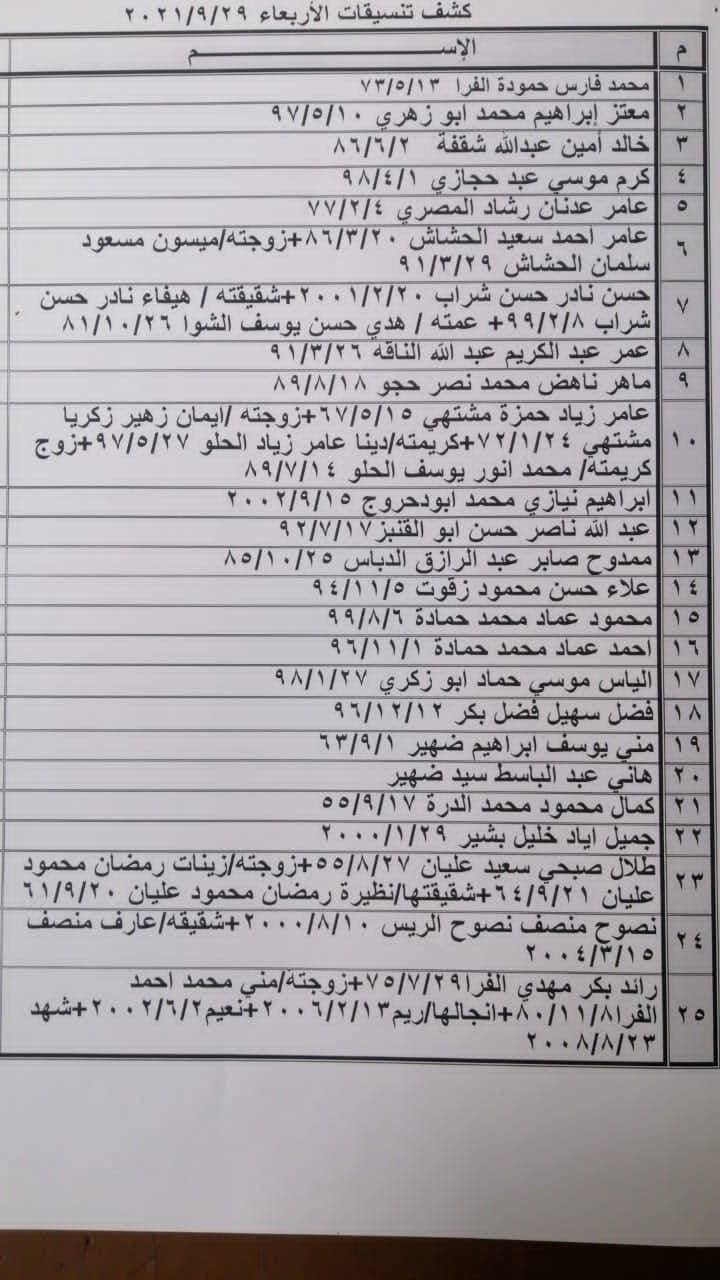 كشف تنسيقات الأربعاء ٢٠٢١/٩/٢٩
م الإســـــــــــــــم
١ محمد فارس حمودة الفرا ٧٣/٥/١٣
٢ معتز إبراهيم محمد ابو زهري ٩٧/٥/١٠
٣ خالد أمين عبدالله شقفة ٨٦/٦/٢
٤ كرم موسي عبد حجازي ٩٨/٤/١
٥ عامر عدنان رشاد المصري ٧٧/٢/٤
٦ عامر احمد سعيد الحشاش ٨٦/٣/٢٠+زوجته/ميسون مسعود
سلمان الحشاش ٩١/٣/٢٩
٧ حسن نادر حسن شراب ٢٠٠١/٢/٢٠+شقيقته / هيفاء نادر حسن
شراب ٩٩/٢/٨+ عمته / هدي حسن يوسف الشوا ٨١/١٠/٢٦
٨ عمر عبد الكريم عبد الله الناقه ٩١/٣/٢٦
٩ ماهر ناهض محمد نصر حجو ٨٩/٨/١٨
١٠ عامر زياد حمزة مشتهي ٦٧/٥/١٥+زوجته /ايمان زهير زكريا
مشتهي ٧٢/١/٢٤+كريمته/دينا عامر زياد الحلو ٩٧/٥/٢٧+زوج
كريمته/ محمد انور يوسف الحلو ٨٩/٧/١٤
١١ ابراهيم نيازي محمد ابودحروج ٢٠٠٢/٩/١٥
١٢ عبد الله ناصر حسن ابو القنبز٩٢/٧/١٧
١٣ ممدوح صابر عبد الرازق الدباس ٨٥/١٠/٢٥
١٤ علاء حسن محمود زقوت ٩٤/١١/٥
١٥ محمود عماد محمد حمادة ٩٩/٨/٦
١٦ احمد عماد محمد حمادة ٩٦/١١/١
١٧ الياس موسي حماد ابو زكري ٩٨/١/٢٧
١٨ فضل سهيل فضل بكر ٩٦/١٢/١٢
١٩ مني يوسف ابراهيم ضهير ٦٣/٩/١
٢٠ هاني عبد الباسط سيد ضهير
٢١ كمال محمود محمد الدرة ٥٥/٩/١٧
٢٢ جميل اياد خليل بشير ٢٠٠٠/١/٢٩
٢٣ طلال صبحي سعيد عليان ٥٥/٨/٢٧+زوجته/زينات رمضان محمود
عليان ٦٤/٩/٢١+شقيقتها/نظيرة رمضان محمود عليان ٦١/٩/٢٠
٢٤ نصوح منصف نصوح الريس ٢٠٠٠/٨/١٠+شقيقه/عارف منصف
٢٠٠٤/٣/١٥
٢٥ رائد بكر مهدي الفرا٧٥/٧/٢٩+زوجته/مني محمد احمد
الفرا٨٠/١١/٨+انجالها/ريم٢٠٠٦/٢/١٣+نعيم٢٠٠٢/٦/٢+شهد
٢٠٠٨/٨/٢٣